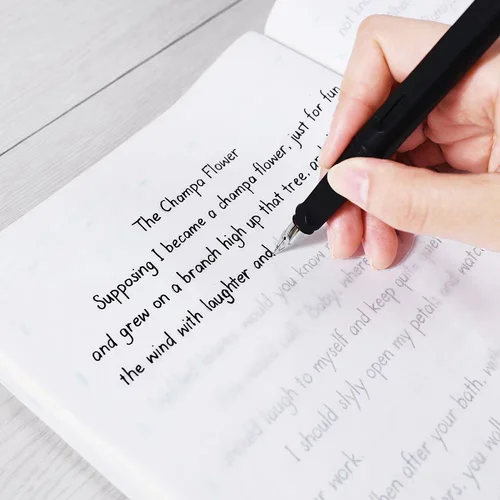 The Champa Flower
Supposing I became a champa flower, just for fun
and grew on a branch high up that tree, an
the wind with laughter and
would you know
"Baby, where
should laugh to myself and keep
I should slyly open my petals and watch
work.
after your bath,
you